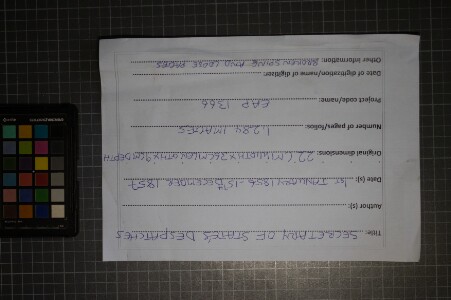 Title: SECRETARY OF STATE'S DESPATCHES
Author (s):
Date (s): 1st JANUARY 1856 - 15th DECEMBER 1857
Original dimensions: 22 CM WIDTH X 36CM LENGTH X 9CM DEPTH
Number of pages/folios: 1,284 IMAGES
Project code/name: EAP 1366
Date of digitization/name of digitizer:
Other information: BROKEN SPINE AND LOOSE PAGES